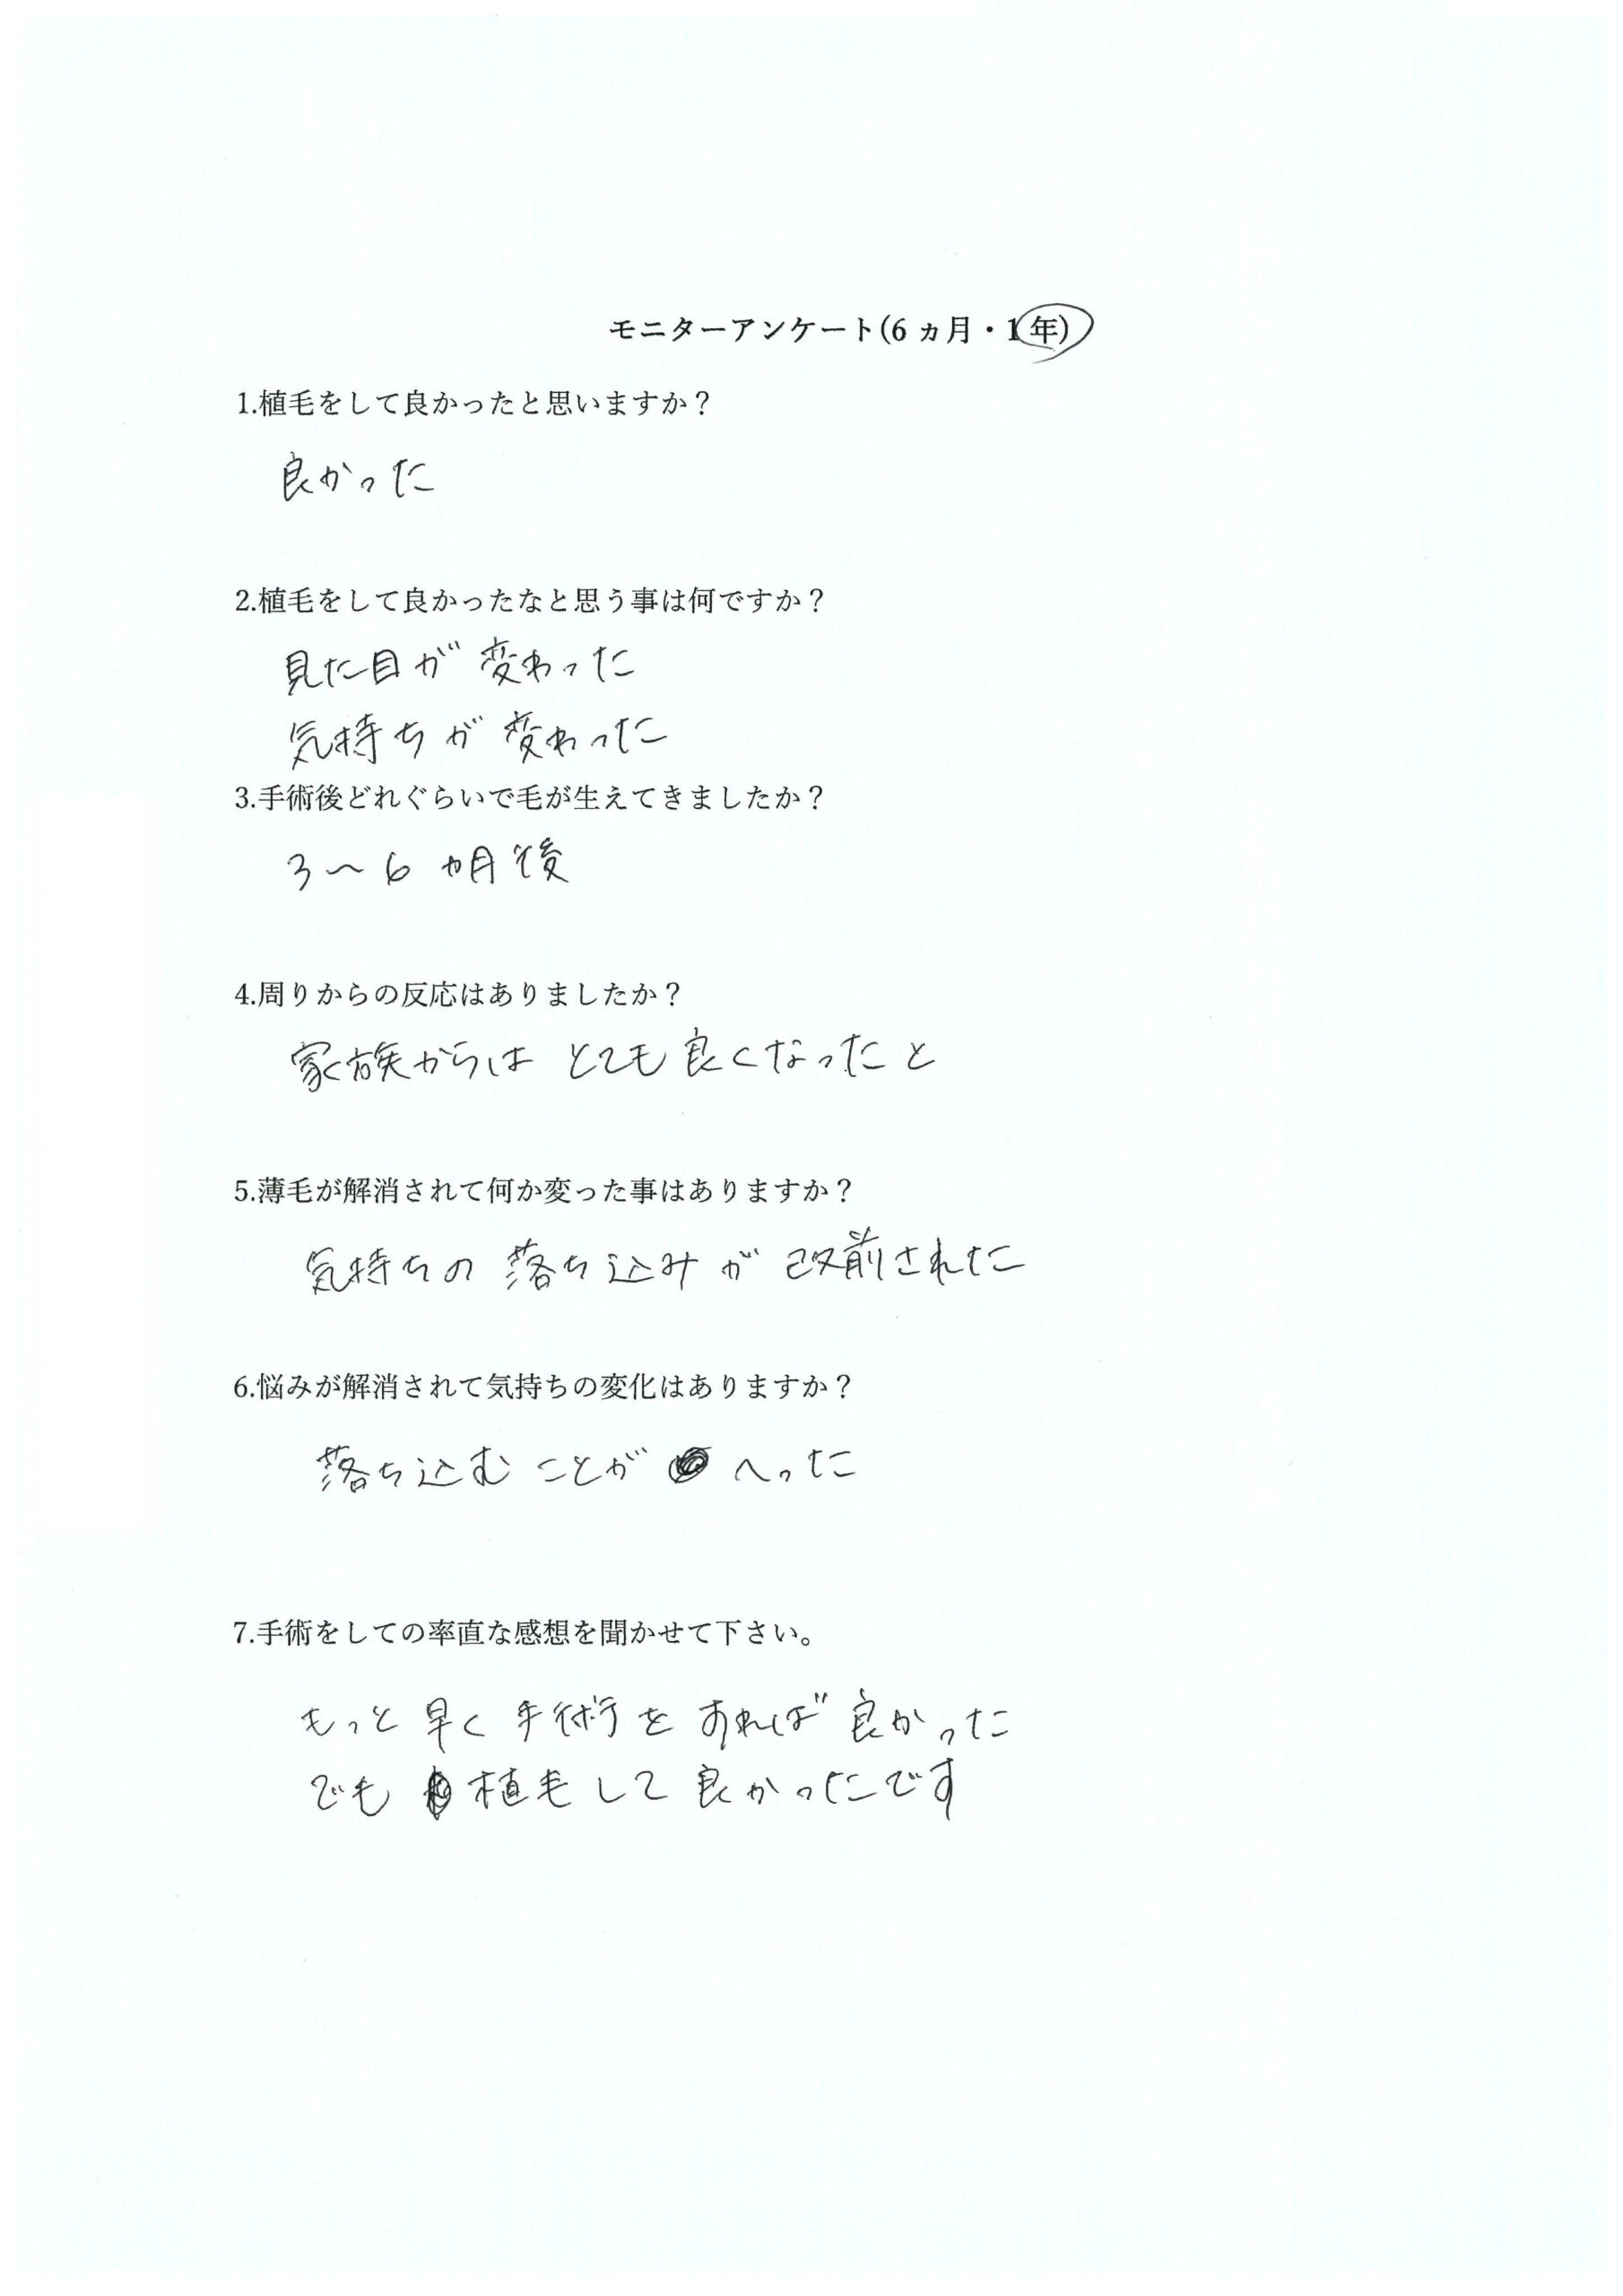 モニターアンケート(6 ヵ月・1年)
1.植毛をして良かったと思いますか？
良かった
2.植毛をして良かったなと思う事は何ですか？
見た目が変わった
気持ちが変わった
3.手術後どれぐらいで毛が生えてきましたか？
3〜6ヵ月後
4.周りからの反応はありましたか？
家族からは とても良くなったと
5.薄毛が解消されて何か変った事はありますか？
気持ちの落ち込みが改前された
6.悩みが解消されて気持ちの変化はありますか？
落ち込むことが へった
7.手術をしての率直な感想を聞かせて下さい。
もっと早く手術をすれば良かった
でも 植毛して良かったです